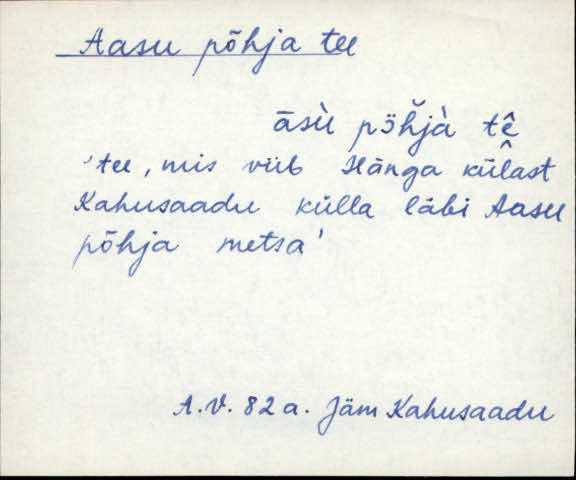 Aasu põhja tee
āsù pɔ̈h̆jà tê
'tee, mis viib Hänga külast
Kahusaadu külla läbi Aasu
põhja metsa'
A.V. 82 a. Jäm Kahusaadu